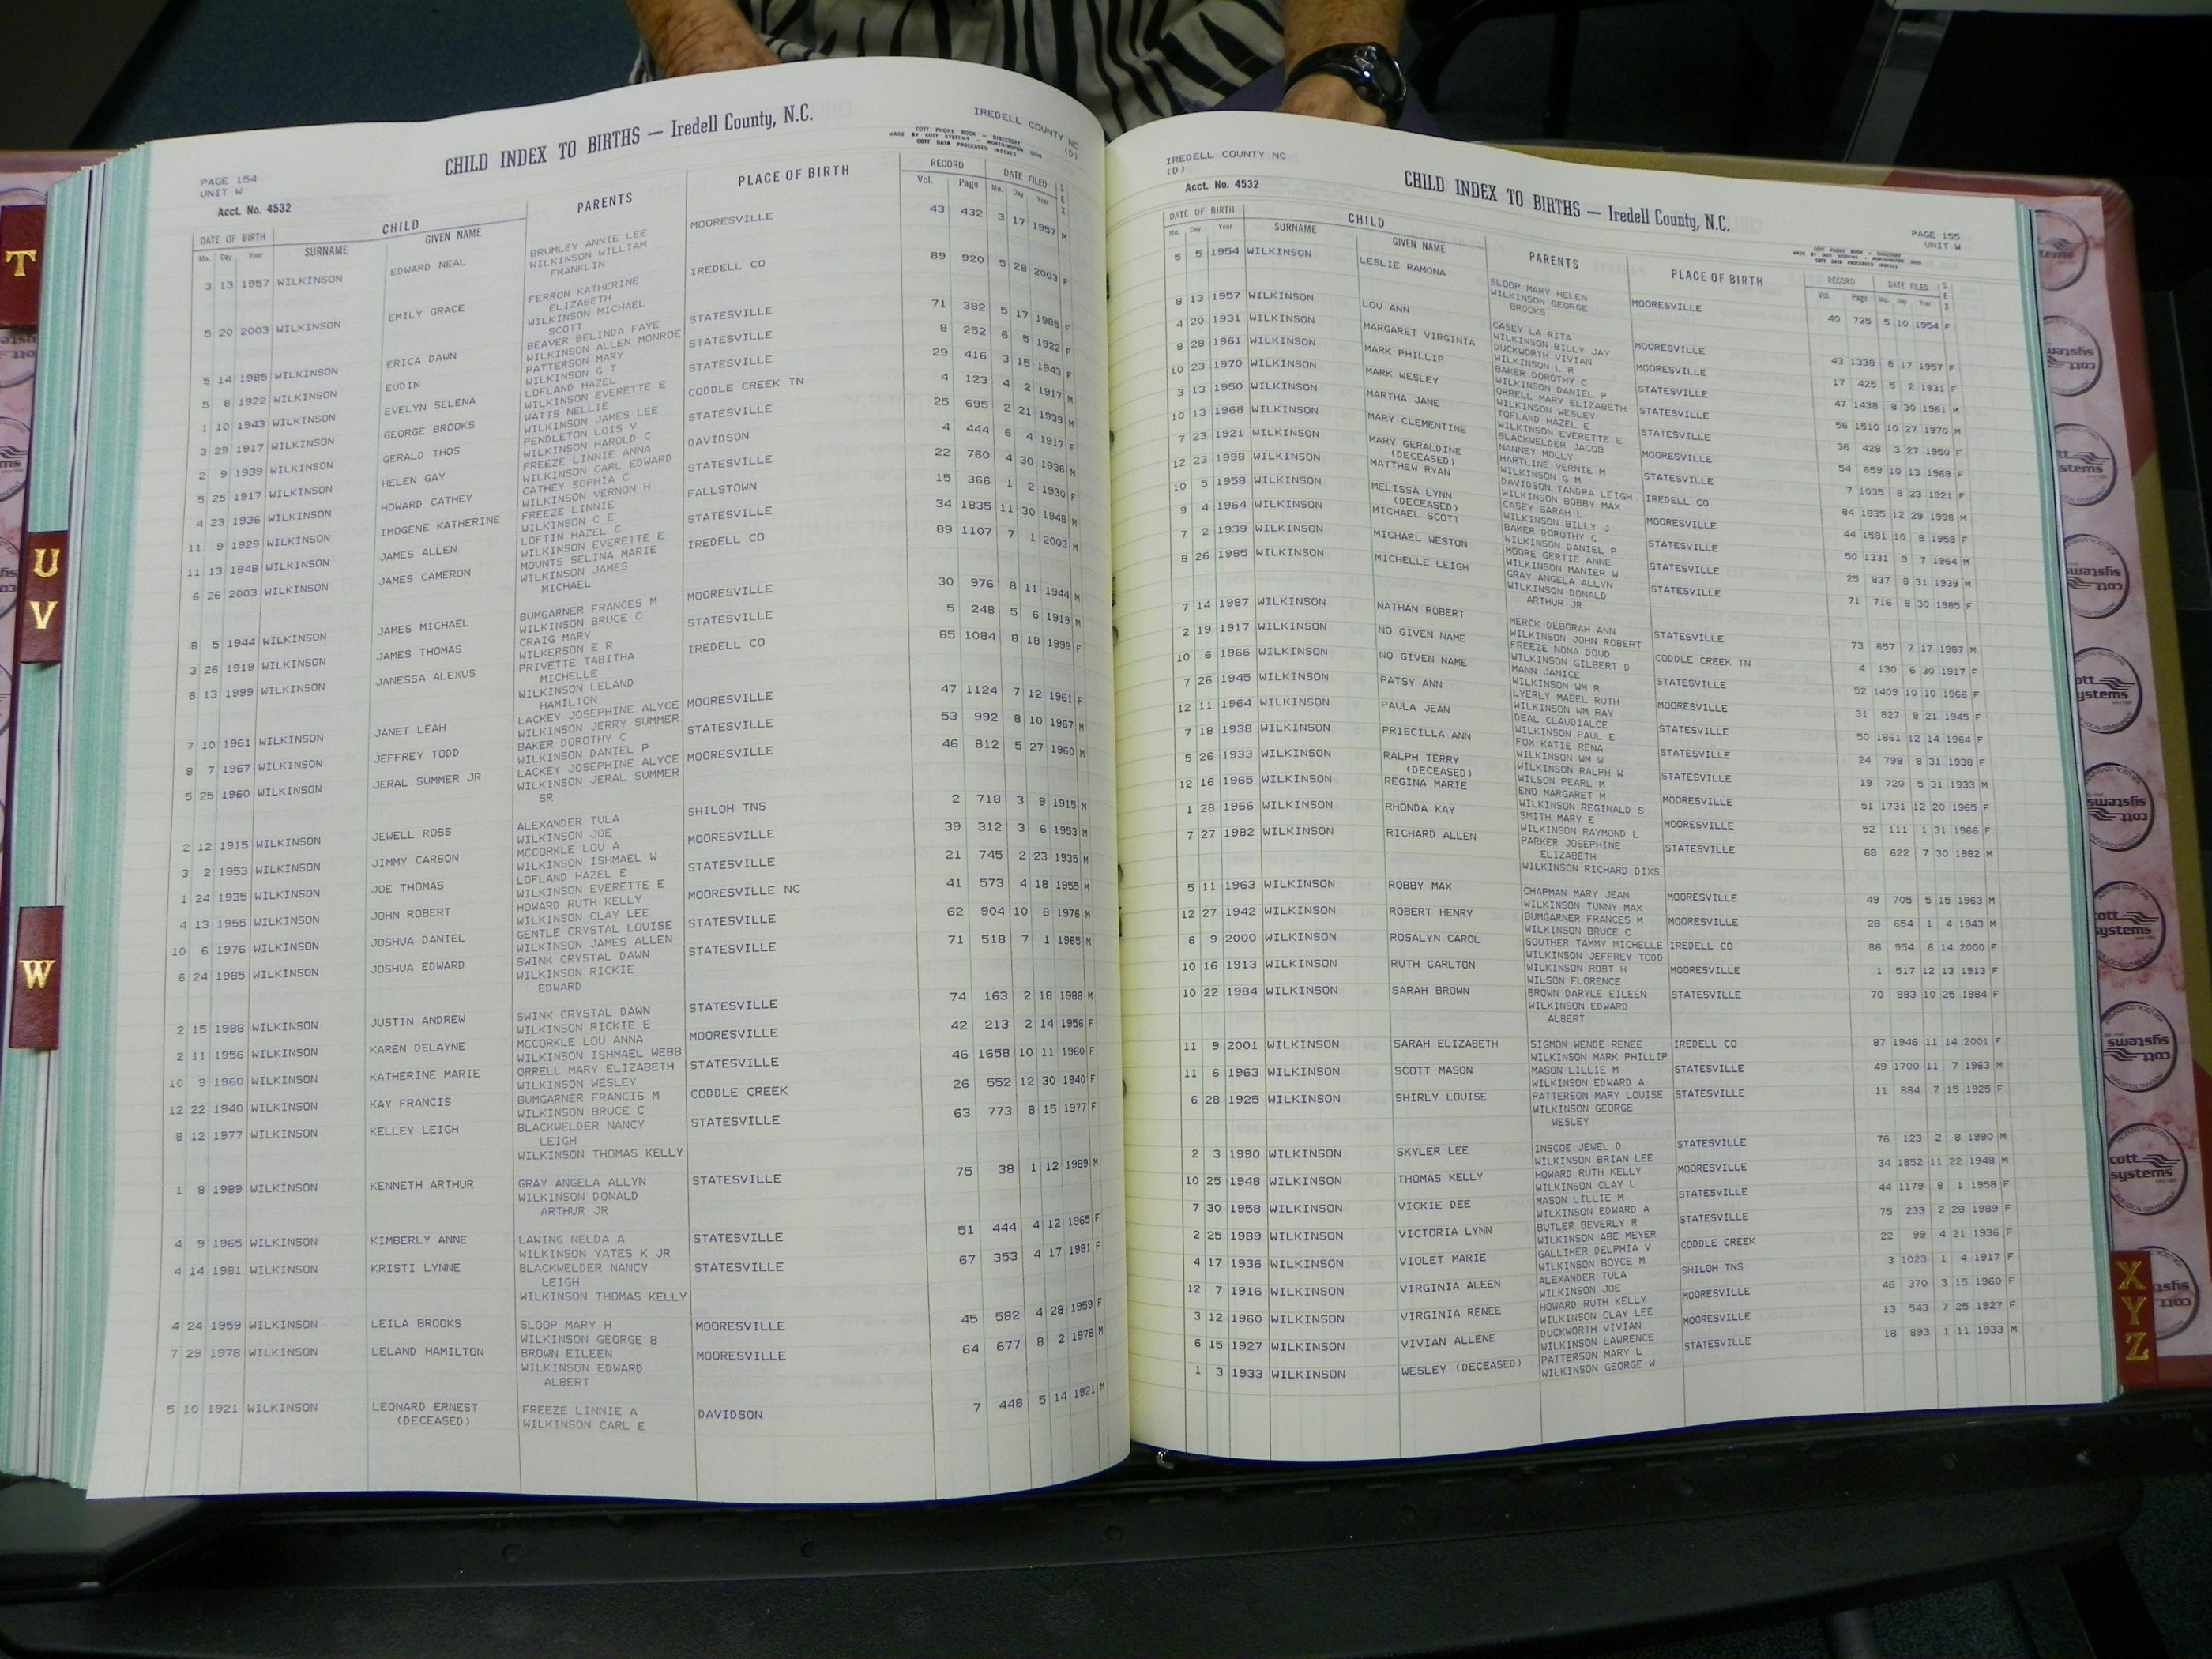 T
U
V
W
X
Y
Z
CHILD INDEX TO BIRTHS — Iredell County, N.C.
IREDELL COUNTY NC
(D)
COTT PHONE BOOK — DIRECTORY
MADE BY COTT SYSTEMS — WORTHINGTON OHIO
COTT DATA PROCESSED INDEXES
PAGE 154
UNIT W
Acct. No. 4532
DATE OF BIRTH CHILD PARENTS PLACE OF BIRTH RECORD DATE FILED SEX
Mo. Day Year SURNAME GIVEN NAME Vol. Page Mo. Day Year
3 13 1957 WILKINSON EDWARD NEAL BRUMLEY ANNIE LEE MOORESVILLE 43 432 3 17 1957 M
WILKINSON WILLIAM
FRANKLIN
5 20 2003 WILKINSON EMILY GRACE FERRON KATHERINE IREDELL CO 89 920 5 28 2003 F
ELIZABETH
WILKINSON MICHAEL
SCOTT
5 14 1985 WILKINSON ERICA DAWN BEAVER BELINDA FAYE STATESVILLE 71 382 5 17 1985 F
WILKINSON ALLEN MONROE
5 8 1922 WILKINSON EUDIN PATTERSON MARY STATESVILLE 8 252 6 5 1922 F
WILKINSON G T
1 10 1943 WILKINSON EVELYN SELENA LOFLAND HAZEL STATESVILLE 29 416 3 15 1943 F
WILKINSON EVERETTE E
3 29 1917 WILKINSON GEORGE BROOKS WATTS NELLIE CODDLE CREEK TN 4 123 4 2 1917 M
WILKINSON JAMES LEE
2 9 1939 WILKINSON GERALD THOS PENDLETON LOIS V STATESVILLE 25 695 2 21 1939 M
WILKINSON HAROLD C
5 25 1917 WILKINSON HELEN GAY FREEZE LINNIE ANNA DAVIDSON 4 444 6 4 1917 F
WILKINSON CARL EDWARD
4 23 1936 WILKINSON HOWARD CATHEY CATHEY SOPHIA C STATESVILLE 22 760 4 30 1936 M
WILKINSON VERNON H
11 9 1929 WILKINSON IMOGENE KATHERINE FREEZE LINNIE FALLSTOWN 15 366 1 2 1930 F
WILKINSON C E
11 13 1948 WILKINSON JAMES ALLEN LOFTIN HAZEL C STATESVILLE 34 1835 11 30 1948 M
WILKINSON EVERETTE E
6 26 2003 WILKINSON JAMES CAMERON MOUNTS SELINA MARIE IREDELL CO 89 1107 7 1 2003 M
WILKINSON JAMES
MICHAEL
8 5 1944 WILKINSON JAMES MICHAEL BUMGARNER FRANCES M MOORESVILLE 30 976 8 11 1944 M
WILKINSON BRUCE C
3 26 1919 WILKINSON JAMES THOMAS CRAIG MARY STATESVILLE 5 248 5 6 1919 M
WILKERSON E R
8 13 1999 WILKINSON JANESSA ALEXUS PRIVETTE TABITHA IREDELL CO 85 1084 8 18 1999 F
MICHELLE
WILKINSON LELAND
HAMILTON
7 10 1961 WILKINSON JANET LEAH LACKEY JOSEPHINE ALYCE MOORESVILLE 47 1124 7 12 1961 F
WILKINSON JERRY SUMMER
8 7 1967 WILKINSON JEFFREY TODD BAKER DOROTHY C STATESVILLE 53 992 8 10 1967 M
WILKINSON DANIEL P
5 25 1960 WILKINSON JERAL SUMMER JR LACKEY JOSEPHINE ALYCE MOORESVILLE 46 812 5 27 1960 M
WILKINSON JERAL SUMMER
SR
2 12 1915 WILKINSON JEWELL ROSS ALEXANDER TULA SHILOH TNS 2 718 3 9 1915 M
WILKINSON JOE
3 2 1953 WILKINSON JIMMY CARSON MCCORKLE LOU A MOORESVILLE 39 312 3 6 1953 M
WILKINSON ISHMAEL W
1 24 1935 WILKINSON JOE THOMAS LOFLAND HAZEL E STATESVILLE 21 745 2 23 1935 M
WILKINSON EVERETTE E
4 13 1955 WILKINSON JOHN ROBERT HOWARD RUTH KELLY MOORESVILLE NC 41 573 4 18 1955 M
WILKINSON CLAY LEE
10 6 1976 WILKINSON JOSHUA DANIEL GENTLE CRYSTAL LOUISE STATESVILLE 62 904 10 8 1976 M
WILKINSON JAMES ALLEN
6 24 1985 WILKINSON JOSHUA EDWARD SWINK CRYSTAL DAWN STATESVILLE 71 518 7 1 1985 M
WILKINSON RICKIE
EDWARD
2 15 1988 WILKINSON JUSTIN ANDREW SWINK CRYSTAL DAWN STATESVILLE 74 163 2 18 1988 M
WILKINSON RICKIE E
2 11 1956 WILKINSON KAREN DELAYNE MCCORKLE LOU ANNA MOORESVILLE 42 213 2 14 1956 F
WILKINSON ISHMAEL WEBB
10 9 1960 WILKINSON KATHERINE MARIE ORRELL MARY ELIZABETH STATESVILLE 46 1658 10 11 1960 F
WILKINSON WESLEY
12 22 1940 WILKINSON KAY FRANCIS BUMGARNER FRANCIS M CODDLE CREEK 26 552 12 30 1940 F
WILKINSON BRUCE C
8 12 1977 WILKINSON KELLEY LEIGH BLACKWELDER NANCY STATESVILLE 63 773 8 15 1977 F
LEIGH
WILKINSON THOMAS KELLY
1 8 1989 WILKINSON KENNETH ARTHUR GRAY ANGELA ALLYN STATESVILLE 75 38 1 12 1989 M
WILKINSON DONALD
ARTHUR JR
4 9 1965 WILKINSON KIMBERLY ANNE LAWING NELDA A STATESVILLE 51 444 4 12 1965 F
WILKINSON YATES K JR
4 14 1981 WILKINSON KRISTI LYNNE BLACKWELDER NANCY STATESVILLE 67 353 4 17 1981 F
LEIGH
WILKINSON THOMAS KELLY
4 24 1959 WILKINSON LEILA BROOKS SLOOP MARY H MOORESVILLE 45 582 4 28 1959 F
WILKINSON GEORGE B
7 29 1978 WILKINSON LELAND HAMILTON BROWN EILEEN MOORESVILLE 64 677 8 2 1978 M
WILKINSON EDWARD
ALBERT
5 10 1921 WILKINSON LEONARD ERNEST FREEZE LINNIE A DAVIDSON 7 448 5 14 1921 M
(DECEASED) WILKINSON CARL E
IREDELL COUNTY NC
(D)
Acct. No. 4532
CHILD INDEX TO BIRTHS — Iredell County, N.C.
PAGE 155
UNIT W
COTT PHONE BOOK — DIRECTORY
MADE BY COTT SYSTEMS — WORTHINGTON OHIO
COTT DATA PROCESSED INDEXES
DATE OF BIRTH CHILD PARENTS PLACE OF BIRTH RECORD DATE FILED SEX
Mo. Day Year SURNAME GIVEN NAME Vol. Page Mo. Day Year
5 5 1954 WILKINSON LESLIE RAMONA SLOOP MARY HELEN MOORESVILLE 40 725 5 10 1954 F
WILKINSON GEORGE
BROOKS
8 13 1957 WILKINSON LOU ANN CASEY LA RITA MOORESVILLE 43 1338 8 17 1957 F
WILKINSON BILLY JAY
4 20 1931 WILKINSON MARGARET VIRGINIA DUCKWORTH VIVIAN MOORESVILLE 17 425 5 2 1931 F
WILKINSON L R
8 28 1961 WILKINSON MARK PHILLIP BAKER DOROTHY C STATESVILLE 47 1438 8 30 1961 M
WILKINSON DANIEL P
10 23 1970 WILKINSON MARK WESLEY ORRELL MARY ELIZABETH STATESVILLE 56 1510 10 27 1970 M
WILKINSON WESLEY
3 13 1950 WILKINSON MARTHA JANE TOFLAND HAZEL E STATESVILLE 36 428 3 27 1950 F
WILKINSON EVERETTE E
10 13 1968 WILKINSON MARY CLEMENTINE BLACKWELDER JACOB MOORESVILLE 54 659 10 13 1968 F
NANNEY MOLLY
7 23 1921 WILKINSON MARY GERALDINE HARTLINE VERNIE M STATESVILLE 7 1035 8 23 1921 F
(DECEASED) WILKINSON G M
12 23 1998 WILKINSON MATTHEW RYAN DAVIDSON TANDRA LEIGH IREDELL CO 84 1835 12 29 1998 M
WILKINSON BOBBY MAX
10 5 1958 WILKINSON MELISSA LYNN CASEY SARAH L MOORESVILLE 44 1581 10 8 1958 F
(DECEASED) WILKINSON BILLY J
9 4 1964 WILKINSON MICHAEL SCOTT BAKER DOROTHY C STATESVILLE 50 1331 9 7 1964 M
WILKINSON DANIEL P
7 2 1939 WILKINSON MICHAEL WESTON MOORE GERTIE ANNE STATESVILLE 25 837 8 31 1939 M
WILKINSON MANIER W
8 26 1985 WILKINSON MICHELLE LEIGH GRAY ANGELA ALLYN STATESVILLE 71 716 8 30 1985 F
WILKINSON DONALD
ARTHUR JR
7 14 1987 WILKINSON NATHAN ROBERT MERCK DEBORAH ANN STATESVILLE 73 657 7 17 1987 M
WILKINSON JOHN ROBERT
2 19 1917 WILKINSON NO GIVEN NAME FREEZE NONA DOUD CODDLE CREEK TN 4 130 6 30 1917 F
WILKINSON GILBERT D
10 6 1966 WILKINSON NO GIVEN NAME MANN JANICE STATESVILLE 52 1409 10 10 1966 F
WILKINSON WM R
7 26 1945 WILKINSON PATSY ANN LYERLY MABEL RUTH MOORESVILLE 31 827 8 21 1945 F
WILKINSON WM RAY
12 11 1964 WILKINSON PAULA JEAN DEAL CLAUDIALCE STATESVILLE 50 1861 12 14 1964 F
WILKINSON PAUL E
7 18 1938 WILKINSON PRISCILLA ANN FOX KATIE RENA STATESVILLE 24 798 8 31 1938 F
WILKINSON WM W
5 26 1933 WILKINSON RALPH TERRY WILKINSON RALPH W STATESVILLE 19 720 5 31 1933 M
(DECEASED) WILSON PEARL M
12 16 1965 WILKINSON REGINA MARIE ENO MARGARET M MOORESVILLE 51 1731 12 20 1965 F
WILKINSON REGINALD S
1 28 1966 WILKINSON RHONDA KAY SMITH MARY E MOORESVILLE 52 111 1 31 1966 F
WILKINSON RAYMOND L
7 27 1982 WILKINSON RICHARD ALLEN PARKER JOSEPHINE STATESVILLE 68 622 7 30 1982 M
ELIZABETH
WILKINSON RICHARD DIXS
5 11 1963 WILKINSON ROBBY MAX CHAPMAN MARY JEAN MOORESVILLE 49 705 5 15 1963 M
WILKINSON TUNNY MAX
12 27 1942 WILKINSON ROBERT HENRY BUMGARNER FRANCES M MOORESVILLE 28 654 1 4 1943 M
WILKINSON BRUCE C
6 9 2000 WILKINSON ROSALYN CAROL SOUTHER TAMMY MICHELLE IREDELL CO 86 954 6 14 2000 F
WILKINSON JEFFREY TODD
10 16 1913 WILKINSON RUTH CARLTON WILKINSON ROBT H MOORESVILLE 1 517 12 13 1913 F
WILSON FLORENCE
10 22 1984 WILKINSON SARAH BROWN BROWN DARYLE EILEEN STATESVILLE 70 883 10 25 1984 F
WILKINSON EDWARD
ALBERT
11 9 2001 WILKINSON SARAH ELIZABETH SIGMON WENDE RENEE IREDELL CO 87 1946 11 14 2001 F
WILKINSON MARK PHILLIP
11 6 1963 WILKINSON SCOTT MASON MASON LILLIE M STATESVILLE 49 1700 11 7 1963 M
WILKINSON EDWARD A
6 28 1925 WILKINSON SHIRLY LOUISE PATTERSON MARY LOUISE STATESVILLE 11 884 7 15 1925 F
WILKINSON GEORGE
WESLEY
2 3 1990 WILKINSON SKYLER LEE INSCOE JEWEL D STATESVILLE 76 123 2 8 1990 M
WILKINSON BRIAN LEE
10 25 1948 WILKINSON THOMAS KELLY HOWARD RUTH KELLY MOORESVILLE 34 1852 11 22 1948 M
WILKINSON CLAY L
7 30 1958 WILKINSON VICKIE DEE MASON LILLIE M STATESVILLE 44 1179 8 1 1958 F
WILKINSON EDWARD A
2 25 1989 WILKINSON VICTORIA LYNN BUTLER BEVERLY R STATESVILLE 75 233 2 28 1989 F
WILKINSON ABE MEYER
4 17 1936 WILKINSON VIOLET MARIE GALLIHER DELPHIA V CODDLE CREEK 22 99 4 21 1936 F
WILKINSON BOYCE M
12 7 1916 WILKINSON VIRGINIA ALEEN ALEXANDER TULA SHILOH TNS 3 1023 1 4 1917 F
WILKINSON JOE
3 12 1960 WILKINSON VIRGINIA RENEE HOWARD RUTH KELLY MOORESVILLE 46 370 3 15 1960 F
WILKINSON CLAY LEE
6 15 1927 WILKINSON VIVIAN ALLENE DUCKWORTH VIVIAN MOORESVILLE 13 543 7 25 1927 F
WILKINSON LAWRENCE
1 3 1933 WILKINSON WESLEY (DECEASED) PATTERSON MARY L STATESVILLE 18 893 1 11 1933 M
WILKINSON GEORGE W
cott
systems